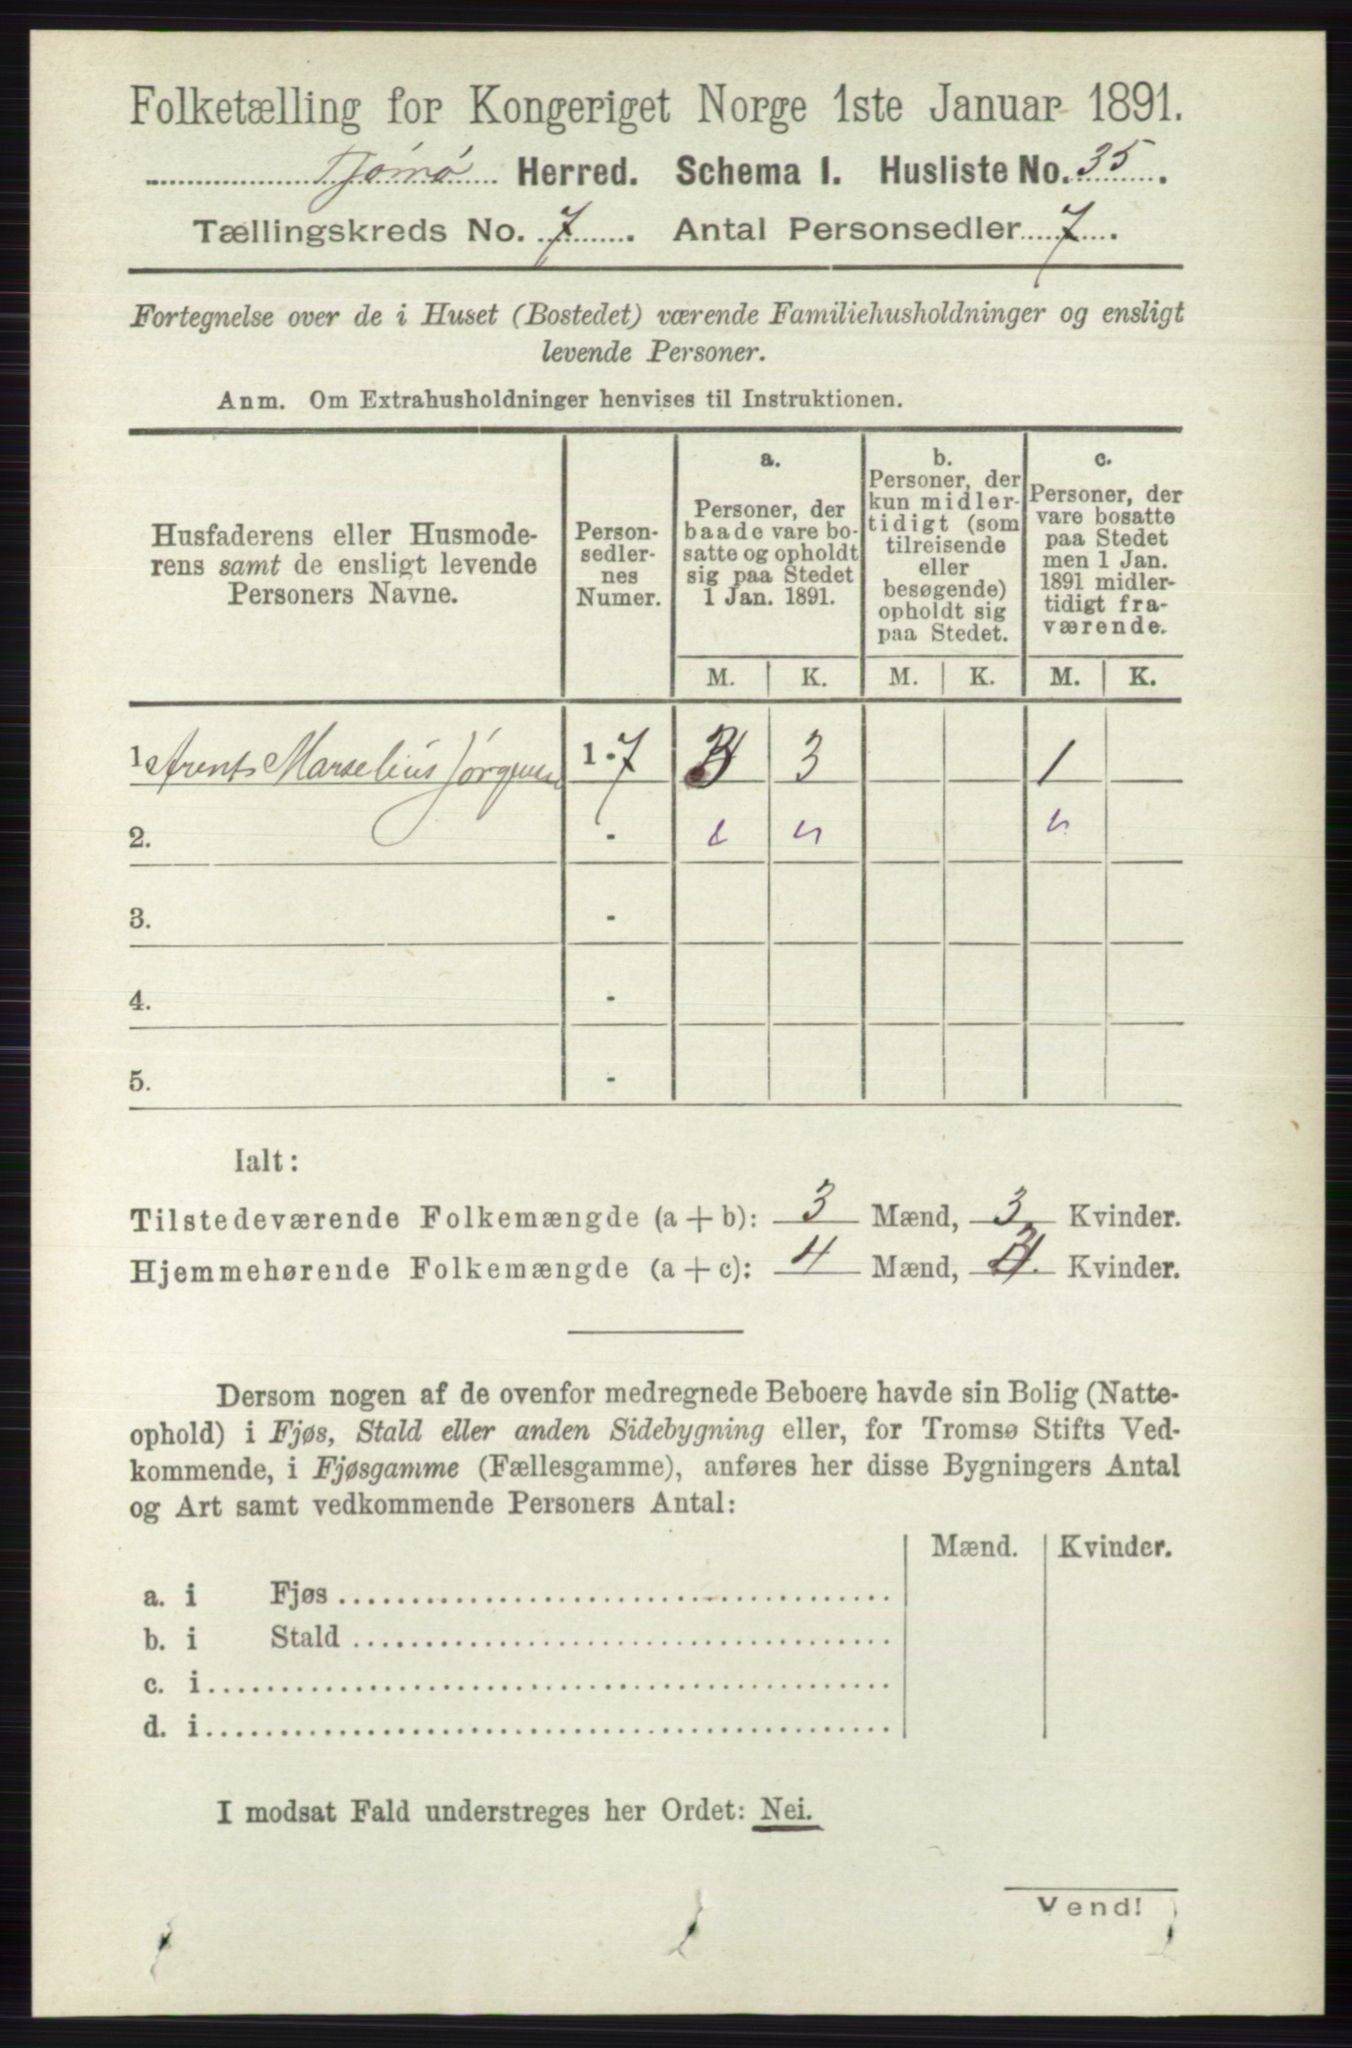 Folketælling for Kongeriget Norge 1ste Januar 1891.
Tjömö Herred. Schema I. Husliste No. 35.
Tællingskreds No. 7. Antal Personsedler 7.
Fortegnelse over de i Huset (Bostedet) værende Familiehusholdninger og ensligt
levende Personer.
Anm. Om Extrahusholdninger henvises til Instruktionen.
Husfaderens eller Husmode-
rens samt de ensligt levende
Personers Navne.
Person-
sedler-
nes
Numer.
a.
Personer, der
baade vare bo-
satte og opholdt
sig paa Stedet
1 Jan. 1891.
b.
Personer, der
kun midler-
tidigt (som
tilreisende
eller
besøgende)
opholdt sig
paa Stedet.
c.
Personer, der
vare bosatte
paa Stedet
men 1 Jan.
1891 midler-
tidigt fra-
værende.
M. K. M. K. M. K.
1 Arent Marselius Jörgensen 1 - 7 3 3 1
2. -
3. -
4. -
5. -
Ialt:
Tilstedeværende Folkemængde (a + b): 3 Mænd, 3 Kvinder.
Hjemmehørende Folkemængde (a + c): 4 Mænd, 3 Kvinder.
Dersom nogen af de ovenfor medregnede Beboere havde sin Bolig (Natte-
ophold) i Fjøs, Stald eller anden Sidebygning eller, for Tromsø Stifts Ved-
kommende, i Fjøsgamme (Fællesgamme), anføres her disse Bygningers Antal
og Art samt vedkommende Personers Antal:
Mænd. Kvinder.
a. i Fjøs
b. i Stald
c. i
d. i
I modsat Fald understreges her Ordet: Nei.
Vend!